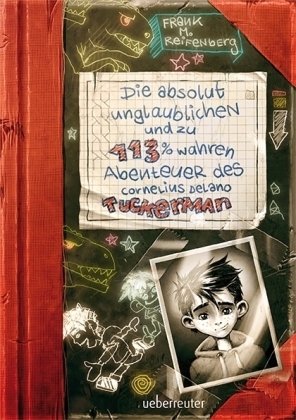 FRANK
M.
REIFENBERG
Die absolut
unglaublichen
und zu
113% wahren
Abenteuer des
cornelius Delano
TUCKERMAN
ueberreuter